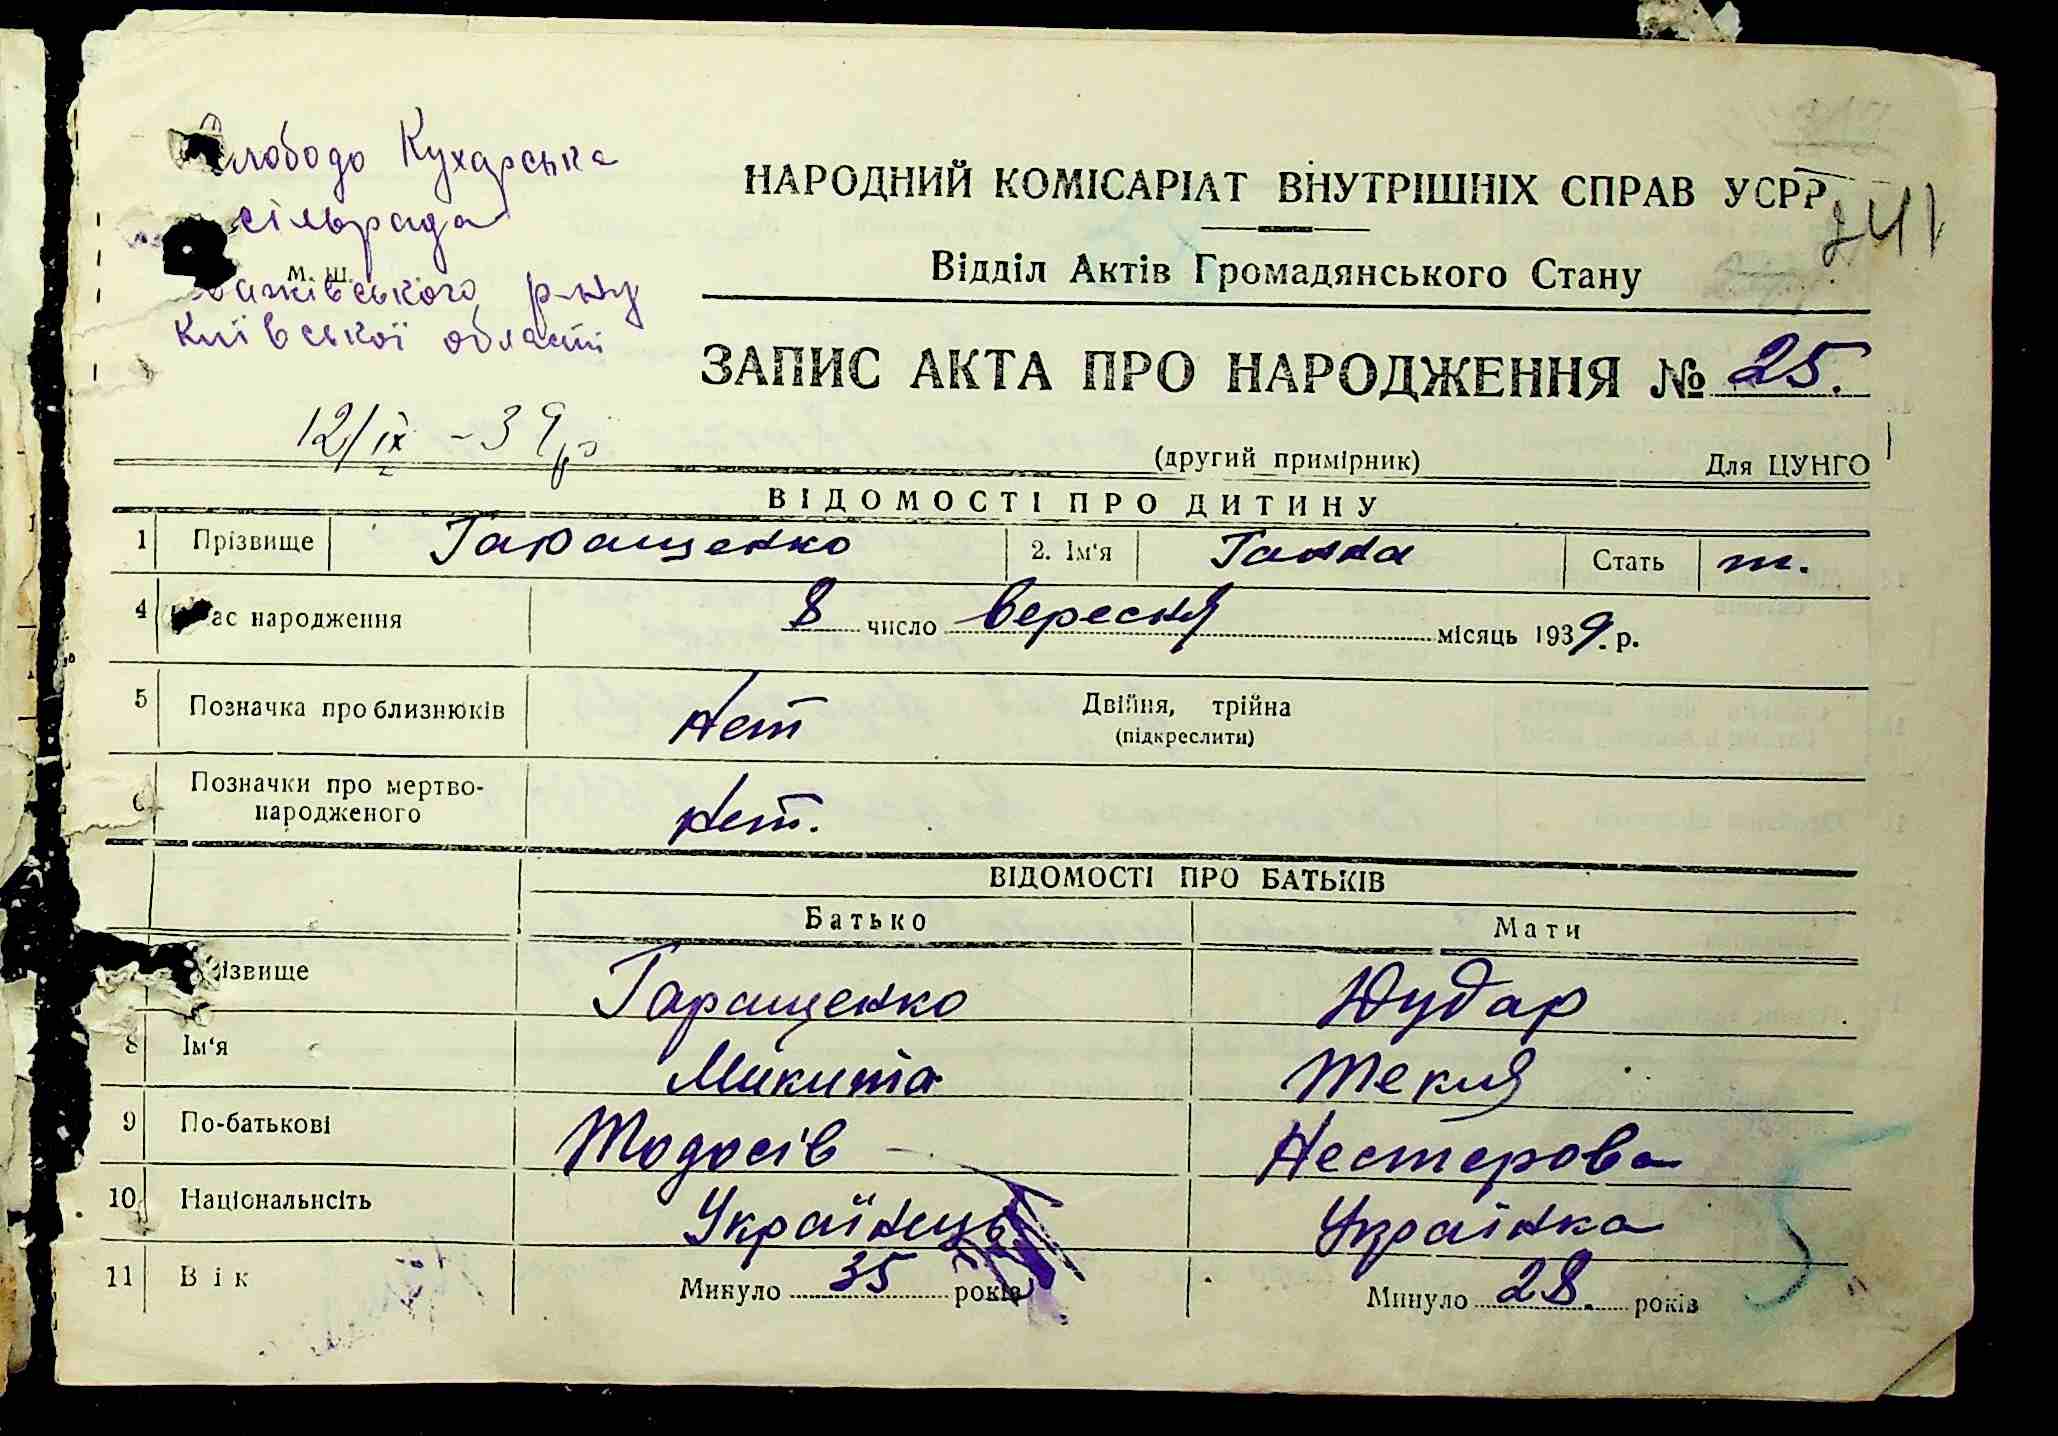 Слободо Кухарська
сільрада
м. ш.
Іванківського р-ну
Київської області
НАРОДНИЙ КОМІСАРІАТ ВНУТРІШНІХ СПРАВ УСРР
241
Відділ Актів Громадянського Стану
ЗАПИС АКТА ПРО НАРОДЖЕННЯ № 25.
12/IX – 39 р
(другий примірник) Для ЦУНГО
ВІДОМОСТІ ПРО ДИТИНУ
1 Прізвище Гаращенко 2. Ім'я Ганна Стать ж.
4 Час народження 8 число вересня місяць 1939. р.
5 Позначка про близнюків Нет Двійня, трійна
(підкреслити)
6 Позначки про мертво-
народженого Нет.
ВІДОМОСТІ ПРО БАТЬКІВ
Батько Мати
ізвище Гаращенко Дудар
8 Ім'я Микита Текля
9 По-батькові Тодосів Нестерова
10 Національнсіть Українець Українка
11 Вік Минуло 35 років Минуло 28. років